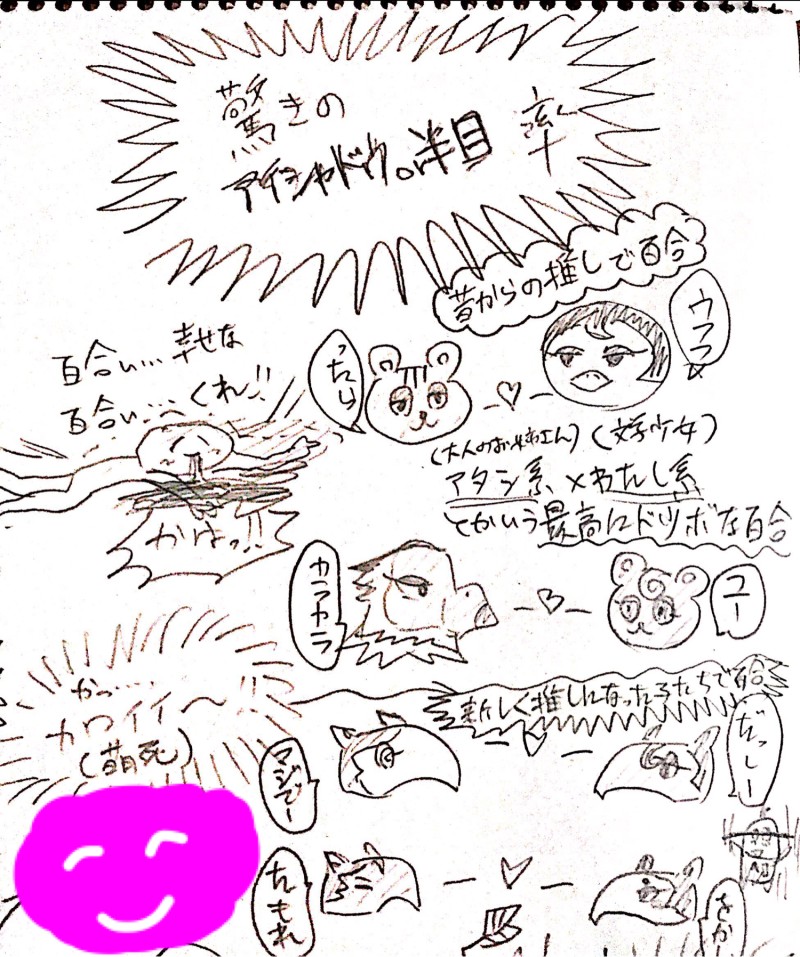 驚きの
アイシャドウ。半目 率
昔からの推しで百合
ウフフ
百合ぃ…幸せな
百合ぃ…くれ!!
ったら
(大人のお姉さん)(文学少女)
アタシ系×わたし系
とかいう最高にドツボな百合
かはっ!!
カラカラ
ユー
新しく推しになった子たちで百合
かっ……
カワイイ〜!!
(萌死)
マジでー
だっしー
たもれ